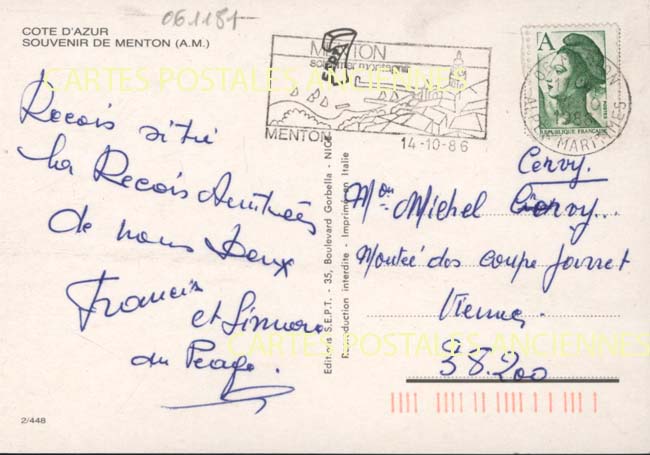 061181
COTE D'AZUR
SOUVENIR DE MENTON (A.M.)
MENTON
soleil mer montagne
MENTON
14-10-86
A
REPUBLIQUE FRANÇAISE
POSTES
ALPES MARITIMES
CARTES POSTALES ANCIENNES
Recois si tu
la Recois Amitiés
de nous deux
Francis
et Simone
du Peage.
Editions S.E.P.T. - 35, Boulevard Gorbella - NICE
Reproduction interdite - Imprimé en Italie
Cervy.
Mon Michel
Montée des coupe Jarret
Vienne
38.200
CARTES POSTALES ANCIENNES
2/448